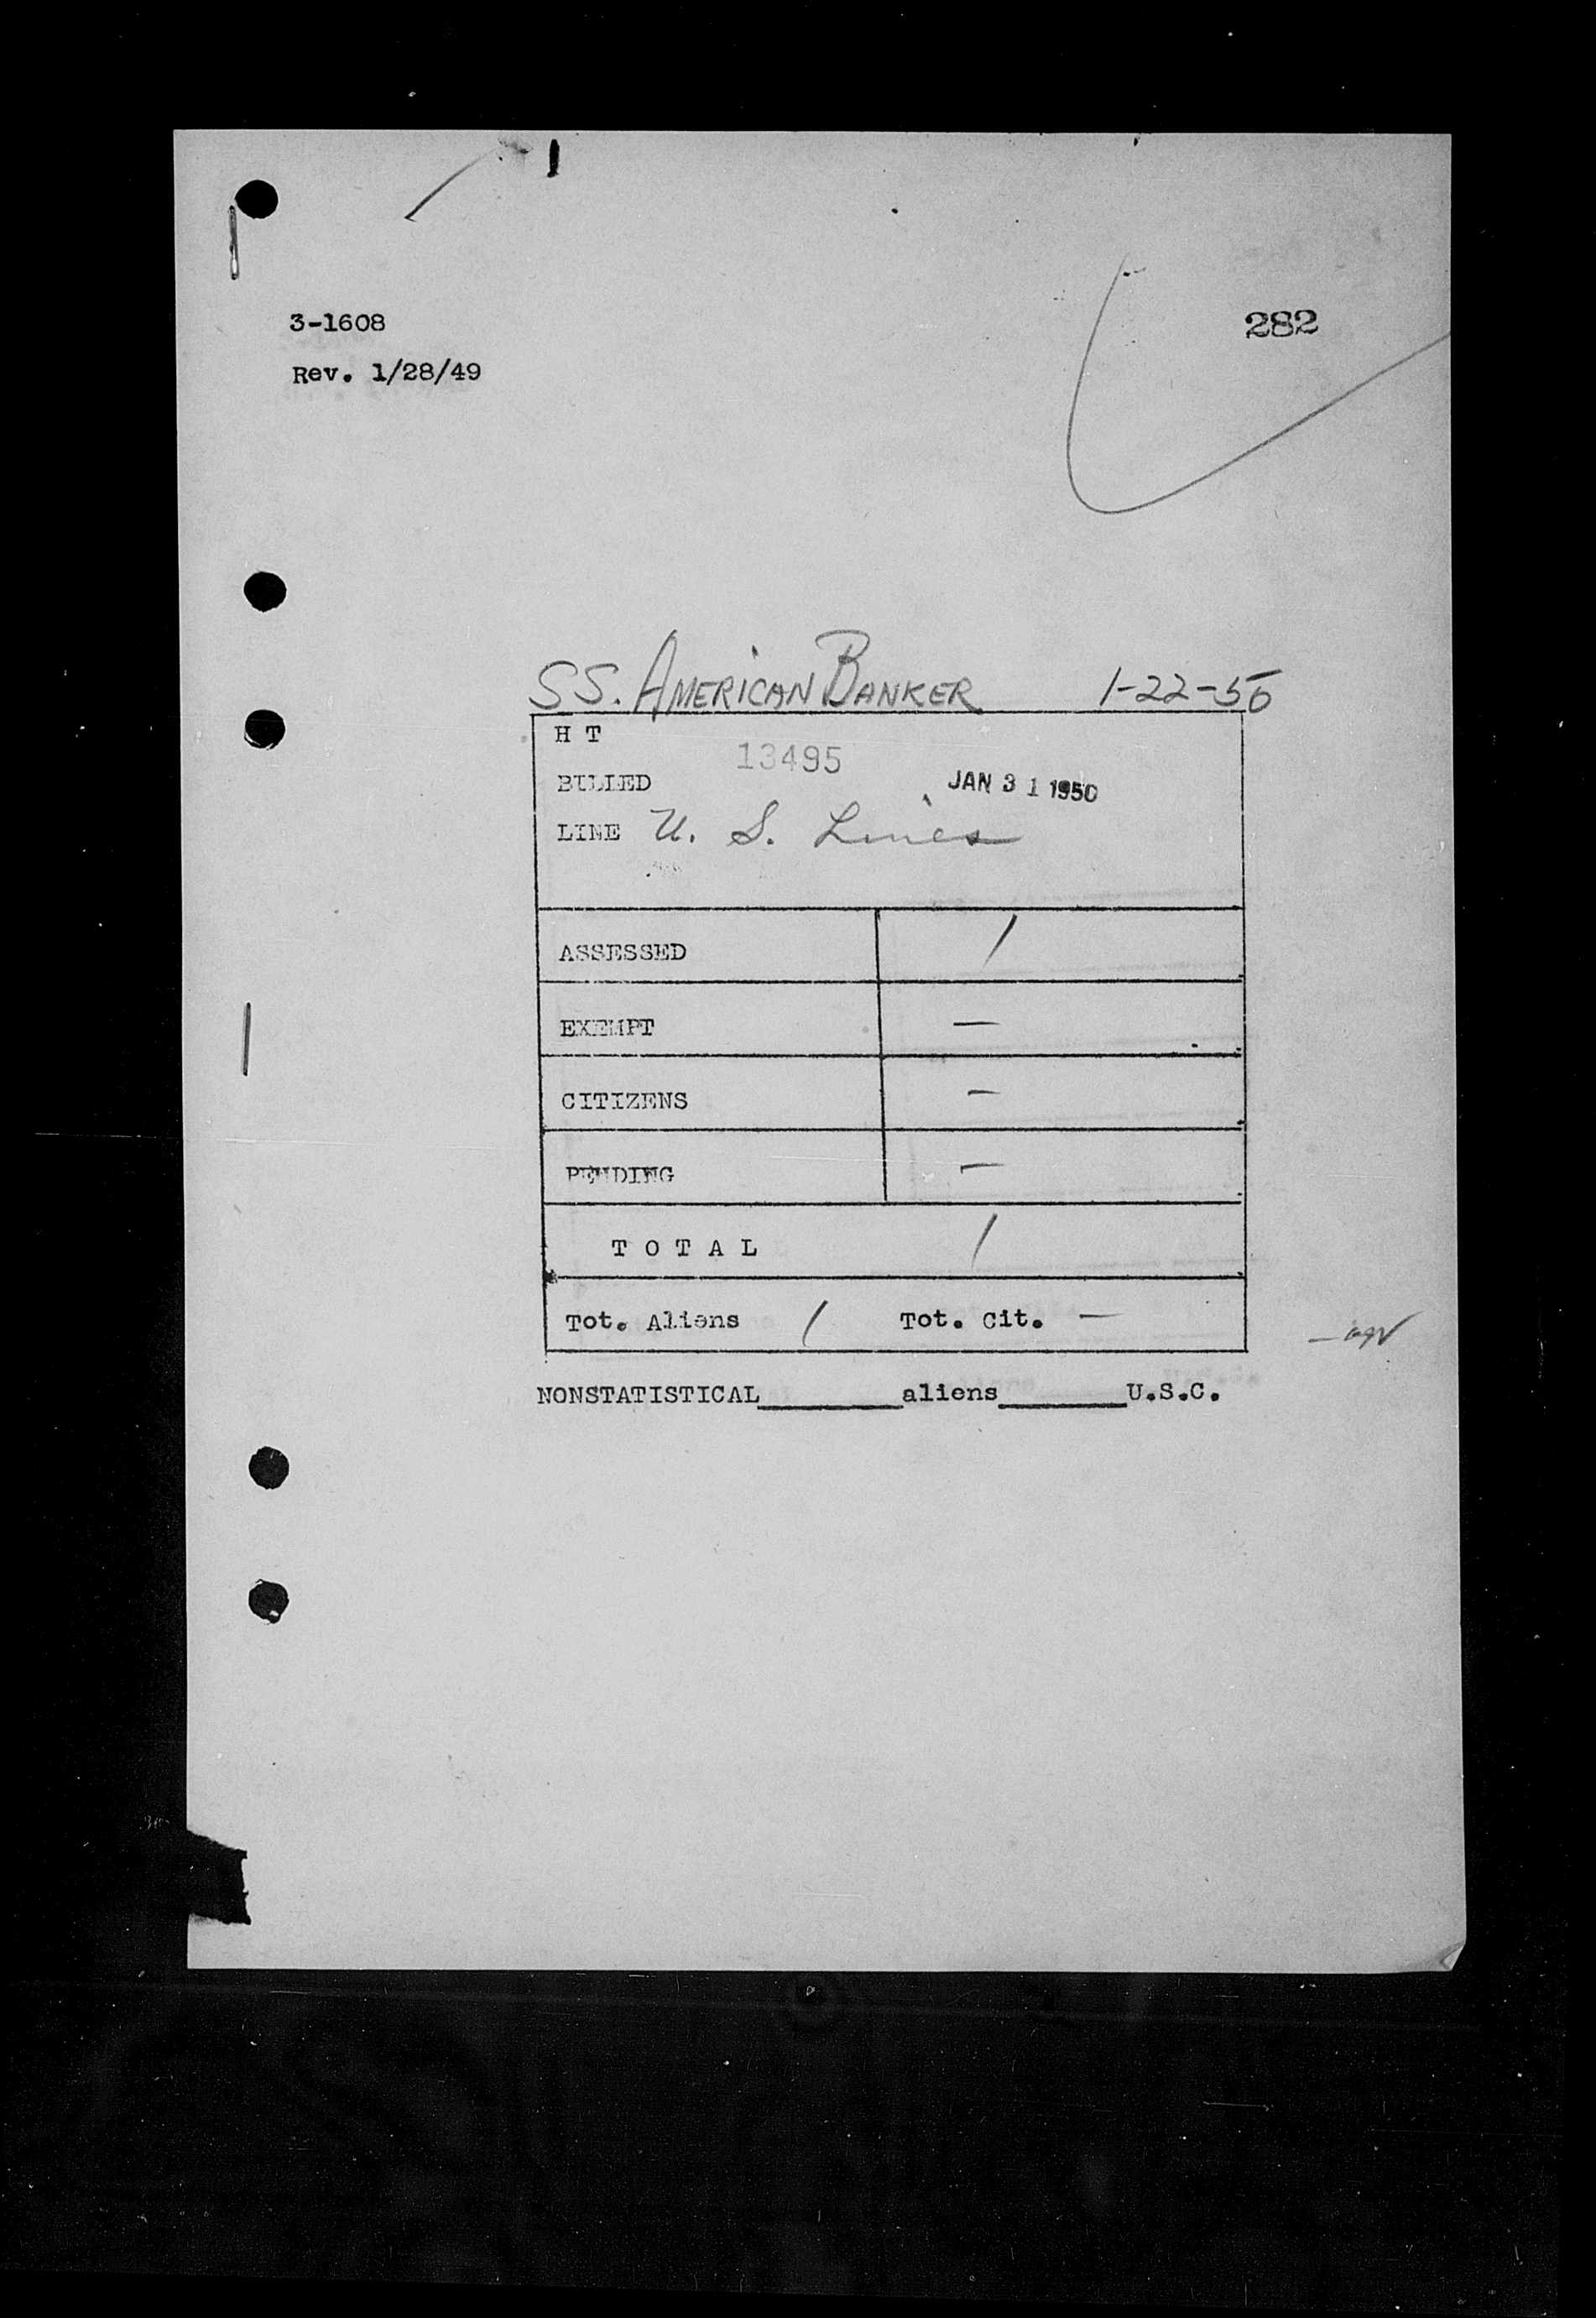 3-1608
282
Rev. 1/28/49
SS. AMERICAN BANKER 1-22-50
H T
13495
BILLED JAN 31 1950
LINE U. S. Lines
ASSESSED 1
EXEMPT —
CITIZENS —
PENDING —
T O T A L 1
Tot. Aliens 1 Tot. Cit. —
NONSTATISTICAL________aliens_______U.S.C.